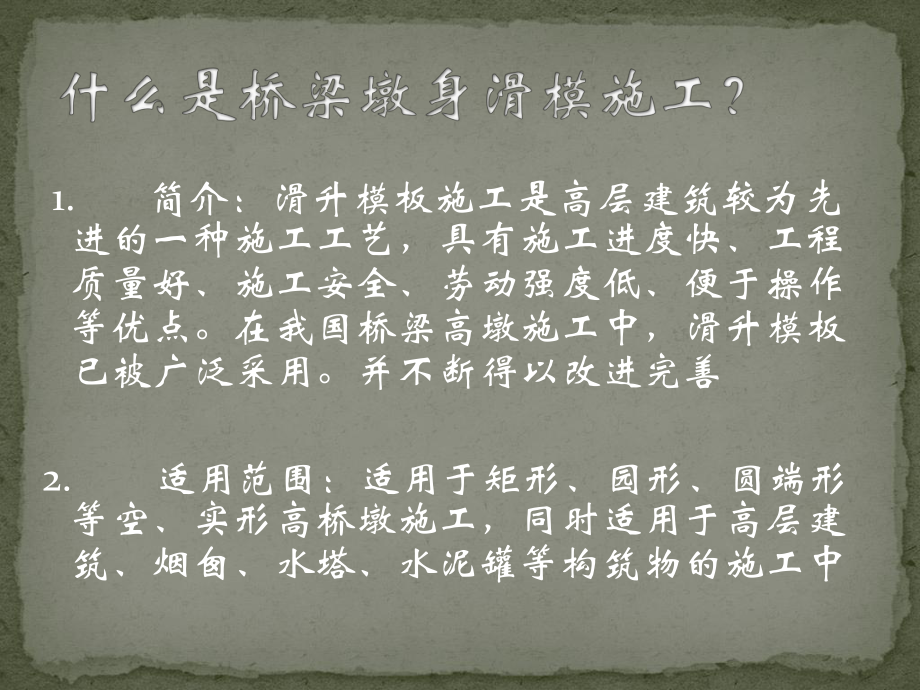 什么是桥梁墩身滑模施工？
1. 简介：滑升模板施工是高层建筑较为先
进的一种施工工艺，具有施工进度快、工程
质量好、施工安全、劳动强度低、便于操作
等优点。在我国桥梁高墩施工中，滑升模板
已被广泛采用。并不断得以改进完善
2. 适用范围：适用于矩形、园形、圆端形
等空、实形高桥墩施工，同时适用于高层建
筑、烟囱、水塔、水泥罐等构筑物的施工中